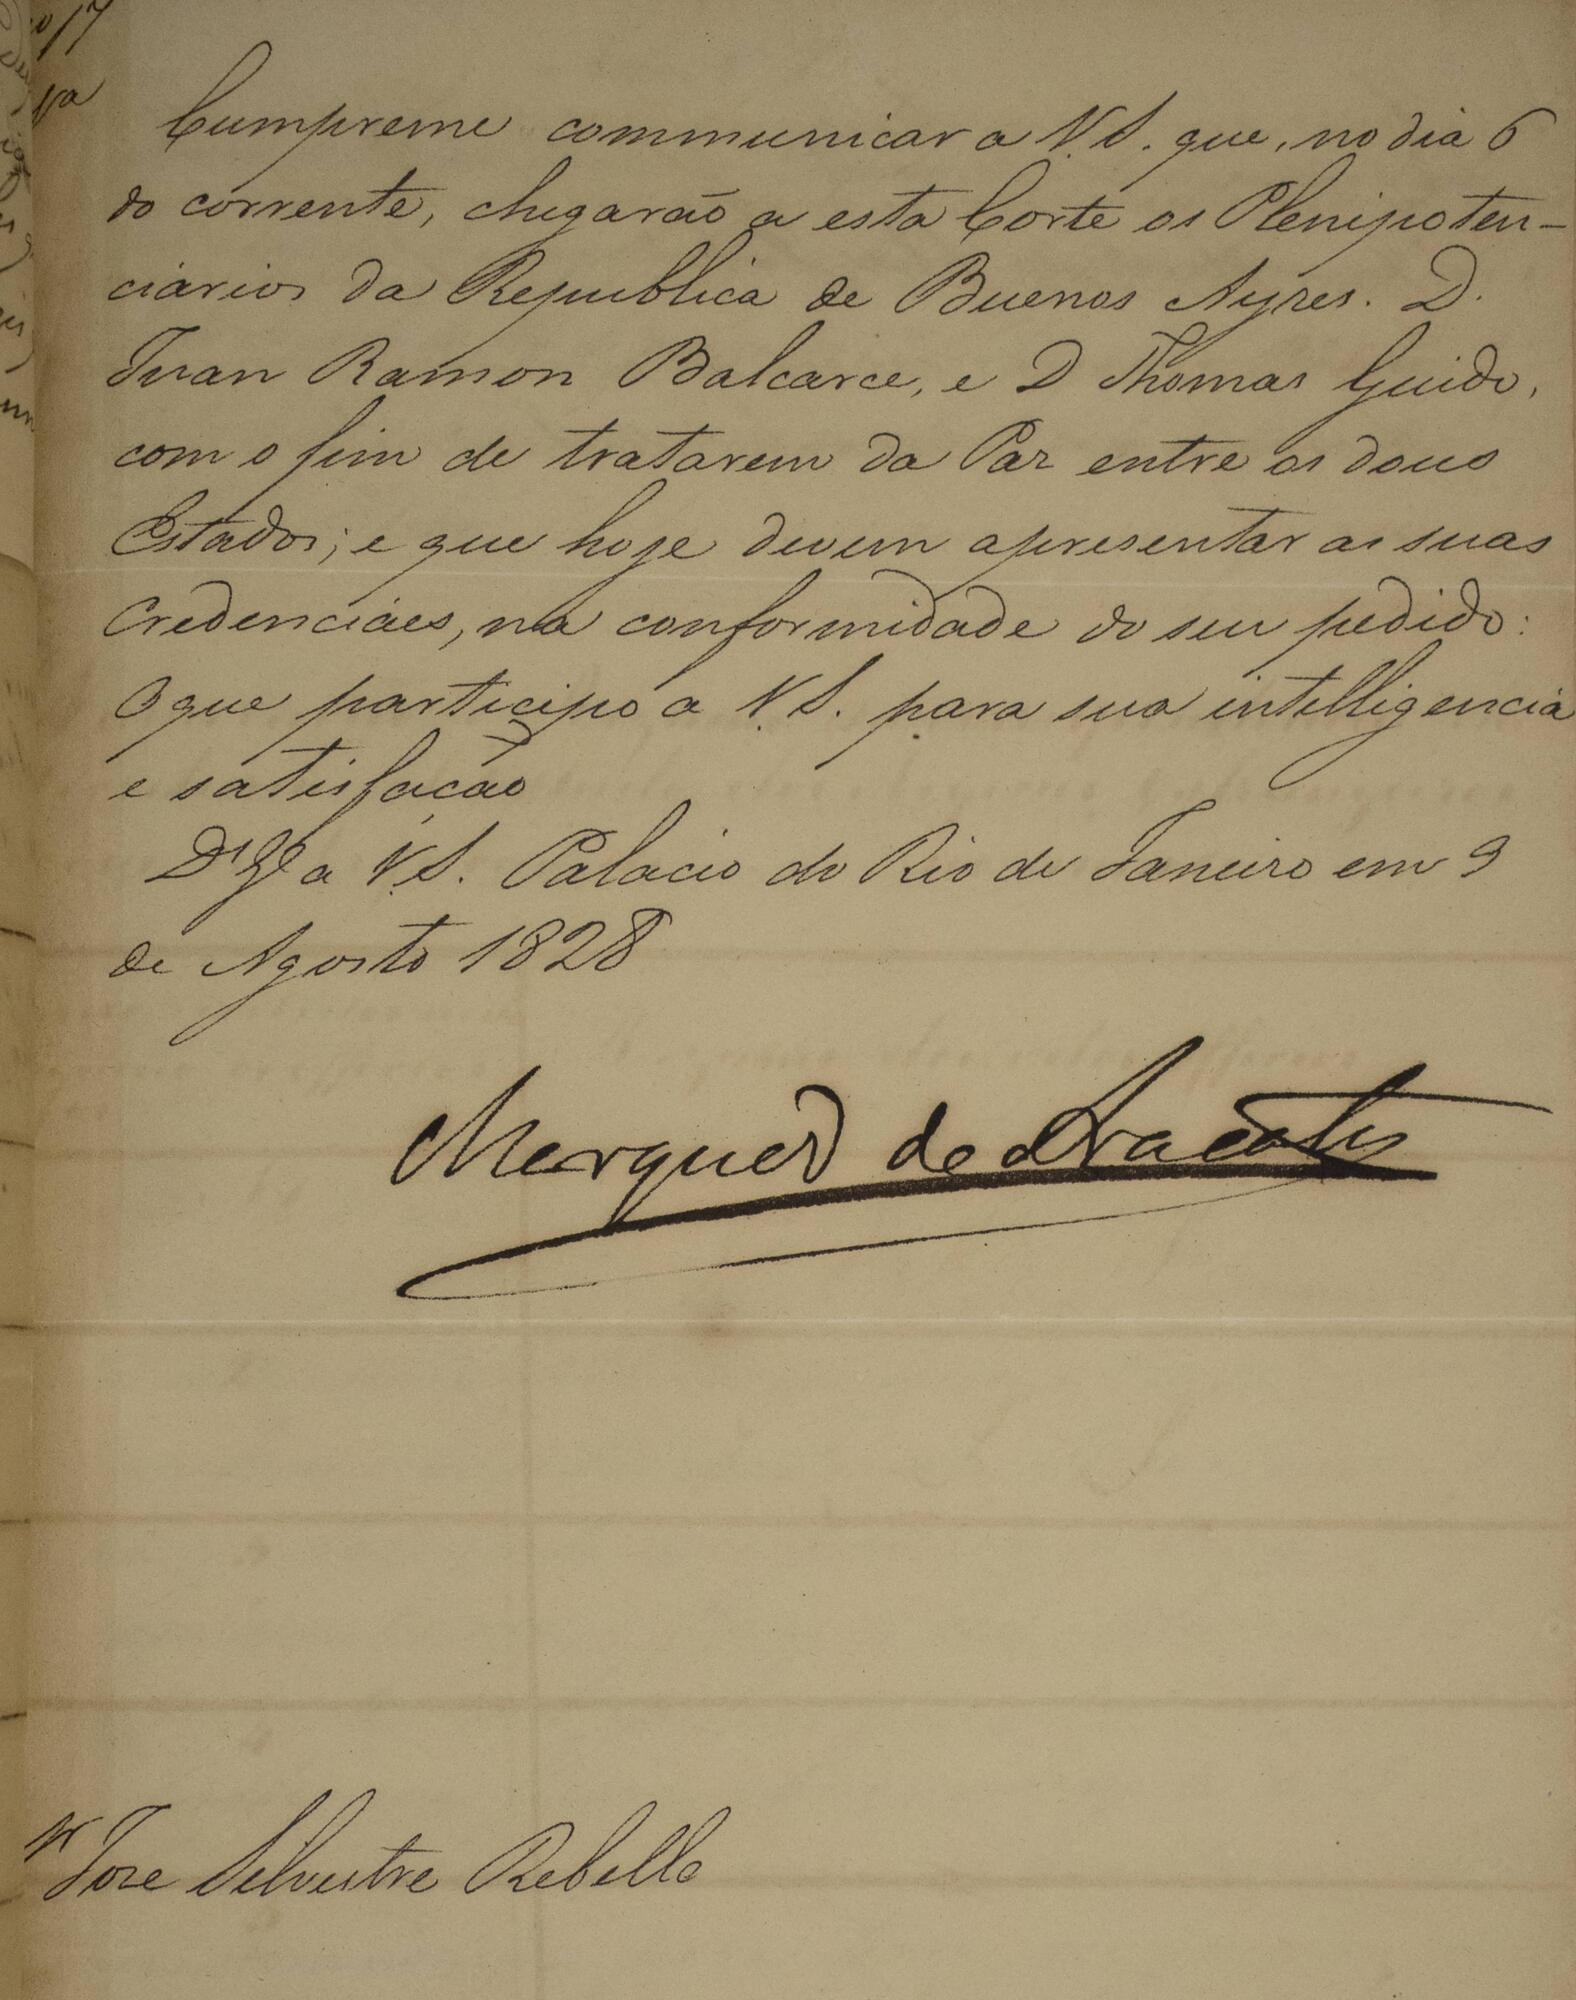 Cumpreme communicar a V. S. que, no dia 6
do corrente, chegarão a esta Corte os Plenipoten-
ciarios da Republica de Buenos Ayres. D.
Juan Ramon Balcarce, e D Thomas Guido,
com o fim de tratarem da Paz entre os dous
Estados; e que hoje devem apresentar as suas
Credenciáes, na conformidade do seu pedido:
O que participo a V. S. para sua intelligencia
e satisfação
Ds Ge a V. S. Palacio do Rio de Janeiro em 9
de Agosto 1828
Marquez de Aracaty
Sr Joze Silvestre Rebello